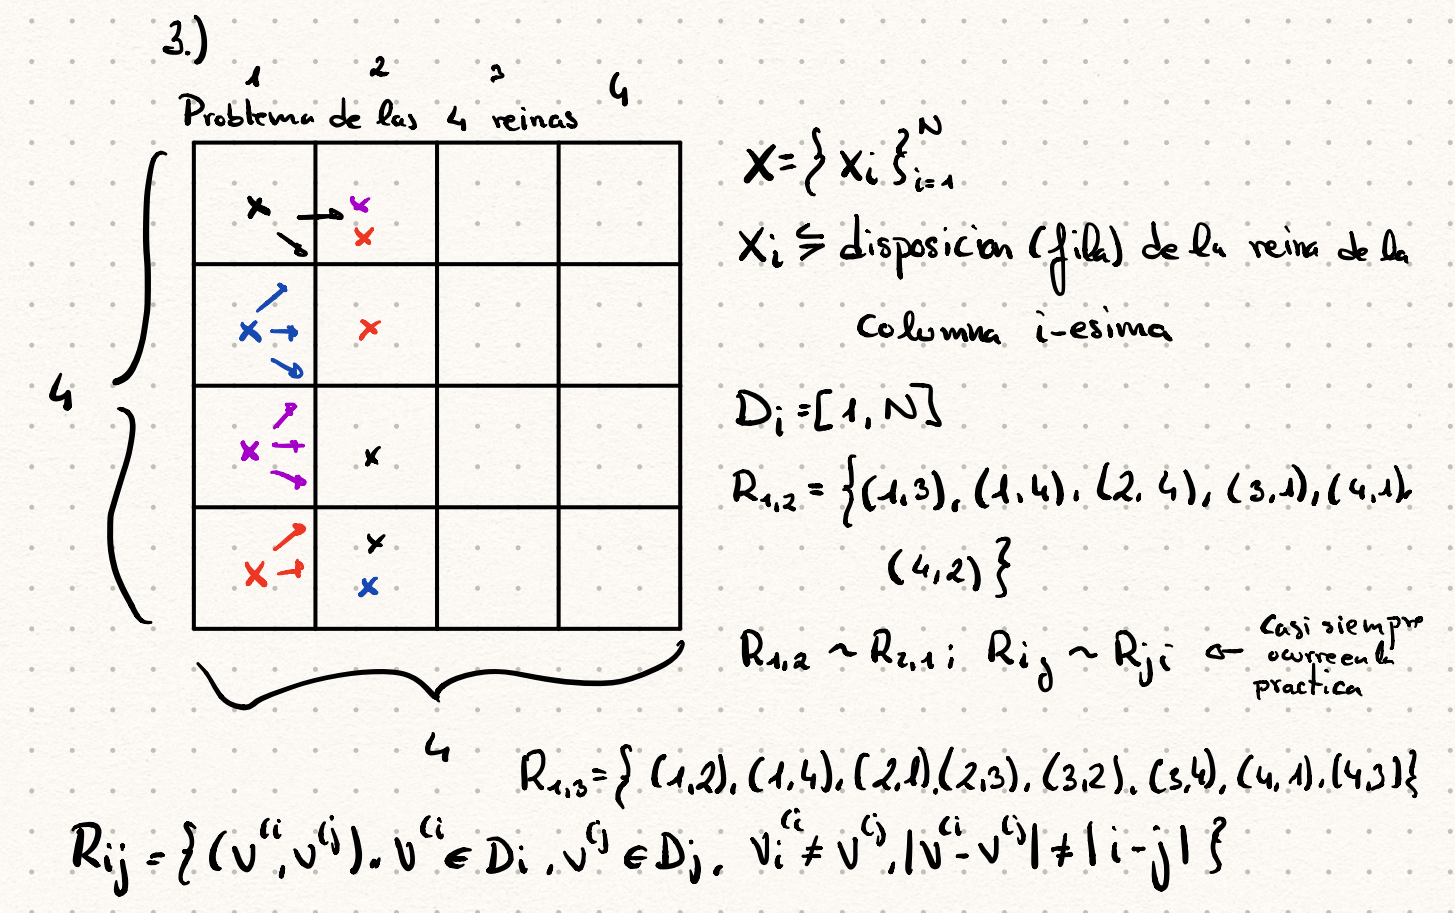 3.)
1 2 3 4
Problema de las 4 reinas
4
4
X={Xi}ᴺi=1
Xi ≒ disposicion (fila) de la reina de la
columna i-esima
Di=[1,N]
R1,2 = {(1,3), (1,4), (2,4), (3,1), (4,1),
(4,2)}
R1,2 ~ R2,1; Rij ~ Rji ←
Casi siempre
ocurre en la
practica
R1,3={(1,2), (1,4), (2,1), (2,3), (3,2), (3,4), (4,1), (4,3)}
Rij = {(v⁽ⁱ, v⁽ʲ), v⁽ⁱ ∈ Di, v⁽ʲ ∈ Dj, vi⁽ⁱ ≠ v⁽ʲ, |v⁽ⁱ - v⁽ʲ| ≠ |i-j|}